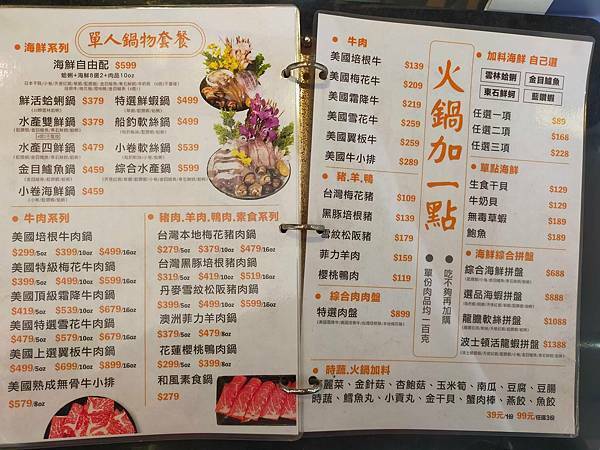 單人鍋物套餐
海鮮系列
海鮮自由配 $599
蛤蜊+海鮮8選2+肉品10oz
鮮活蛤蜊鍋 $379
水產雙鮮鍋 $379
水產四鮮鍋 $479
金目鱸魚鍋 $459
小卷海鮮鍋 $459
特選鮮蝦鍋 $499
船釣軟絲鍋 $499
小卷軟絲鍋 $539
綜合水產鍋 $599
牛肉系列
美國培根牛肉鍋
$299/5oz $399/10oz $499/16oz
美國特級梅花牛肉鍋
$399/5oz $499/10oz $599/16oz
美國頂級霜降牛肉鍋
$419/5oz $539/10oz $679/16oz
美國特選雪花牛肉鍋
$479/5oz $579/10oz $679/16oz
美國上選翼板牛肉鍋
$499/5oz $699/10oz $899/16oz
美國熟成無骨牛小排
$579/8oz
豬肉,羊肉,鴨肉,素食系列
台灣本地梅花豬肉鍋
$279/5oz $379/10oz $479/16oz
台灣黑豚培根豬肉鍋
$299/5oz $399/10oz $499/16oz
丹麥雪紋松阪豬肉鍋
$399/5oz $499/10oz $599/16oz
澳洲菲力羊肉鍋
$399/5oz $499/10oz $599/16oz
花蓮櫻桃鴨肉鍋
$299/5oz $399/10oz $499/16oz
和風素食鍋
$279
火鍋加一點
吃不夠再加購
單份肉品均一百克
牛肉
美國培根牛 $139
美國梅花牛 $209
美國霜降牛 $219
美國雪花牛 $259
美國翼板牛 $269
美國牛小排 $289
豬.羊.鴨
台灣梅花豬 $109
黑豚培根豬 $139
雪紋松阪豬 $179
菲力羊肉 $159
櫻桃鴨肉 $119
綜合肉肉盤
特選肉盤 $899
加料海鮮 自己選
雲林蛤蜊 金目鱸魚
東石鮮蚵 藍鑽蝦
任選一項 $89
任選二項 $168
任選三項 $228
單點海鮮
生食干貝 $129
牛奶貝 $129
無毒草蝦 $189
鮑魚 $189
海鮮綜合拼盤
綜合海鮮拼盤 $688
選品海鮮拼盤 $888
龍膽軟絲拼盤 $1088
波士頓活龍蝦拼盤 $1388
時蔬、火鍋加料
高麗菜、金針菇、杏鮑菇、玉米筍、南瓜、豆腐、豆腸
時蔬、鱈魚丸、小貢丸、金干貝、蟹肉棒、燕餃、魚餃
39元/1份 99元/任選3份